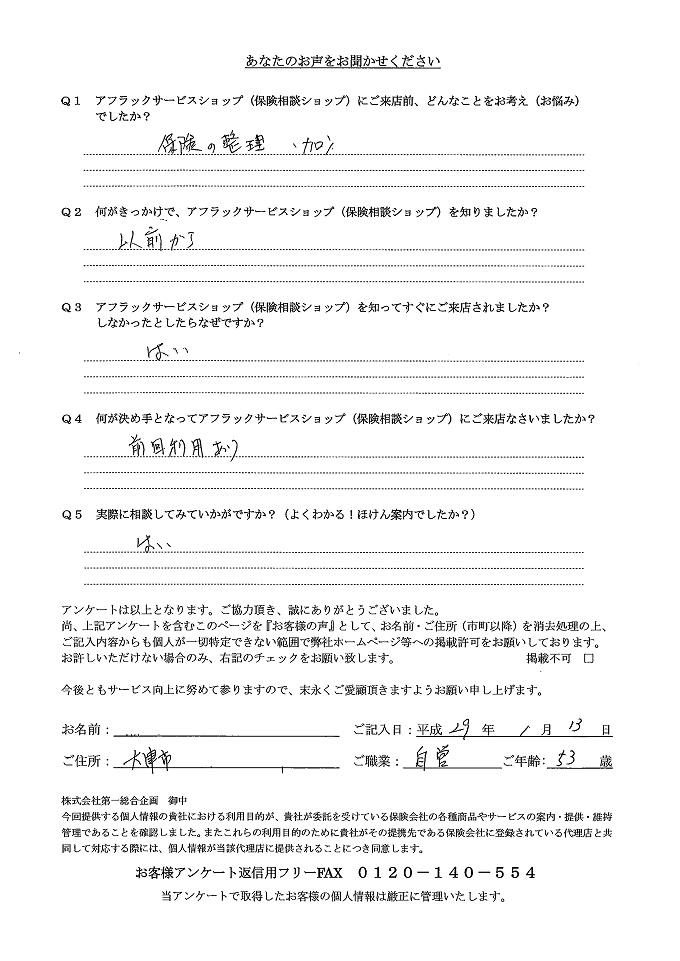 あなたのお声をお聞かせください
Q1 アフラックサービスショップ（保険相談ショップ）にご来店前、どんなことをお考え（お悩み）
でしたか？
保険の整理、加入
Q2 何がきっかけで、アフラックサービスショップ（保険相談ショップ）を知りましたか？
以前から
Q3 アフラックサービスショップ（保険相談ショップ）を知ってすぐにご来店されましたか？
しなかったとしたらなぜですか？
はい
Q4 何が決め手となってアフラックサービスショップ（保険相談ショップ）にご来店なさいましたか？
前回利用あり
Q5 実際に相談してみていかがですか？（よくわかる！ほけん案内でしたか？）
はい
アンケートは以上となります。ご協力頂き、誠にありがとうございました。
尚、上記アンケートを含むこのページを『お客様の声』として、お名前・ご住所（市町以降）を消去処理の上、
ご記入内容からも個人が一切特定できない範囲で弊社ホームページ等への掲載許可をお願いしております。
お許しいただけない場合のみ、右記のチェックをお願い致します。 掲載不可 □
今後ともサービス向上に努めて参りますので、末永くご愛顧頂きますようお願い申し上げます。
お名前： ご記入日：平成 29 年 1 月 13 日
ご住所： 大津市 ご職業： 自営 ご年齢： 53 歳
株式会社第一総合企画 御中
今回提供する個人情報の貴社における利用目的が、貴社が委託を受けている保険会社の各種商品やサービスの案内・提供・維持
管理であることを確認しました。またこれらの利用目的のために貴社がその提携先である保険会社に登録されている代理店と共
同して対応する際には、個人情報が当該代理店に提供されることにつき同意します。
お客様アンケート返信用フリーFAX 0120－140－554
当アンケートで取得したお客様の個人情報は厳正に管理いたします。